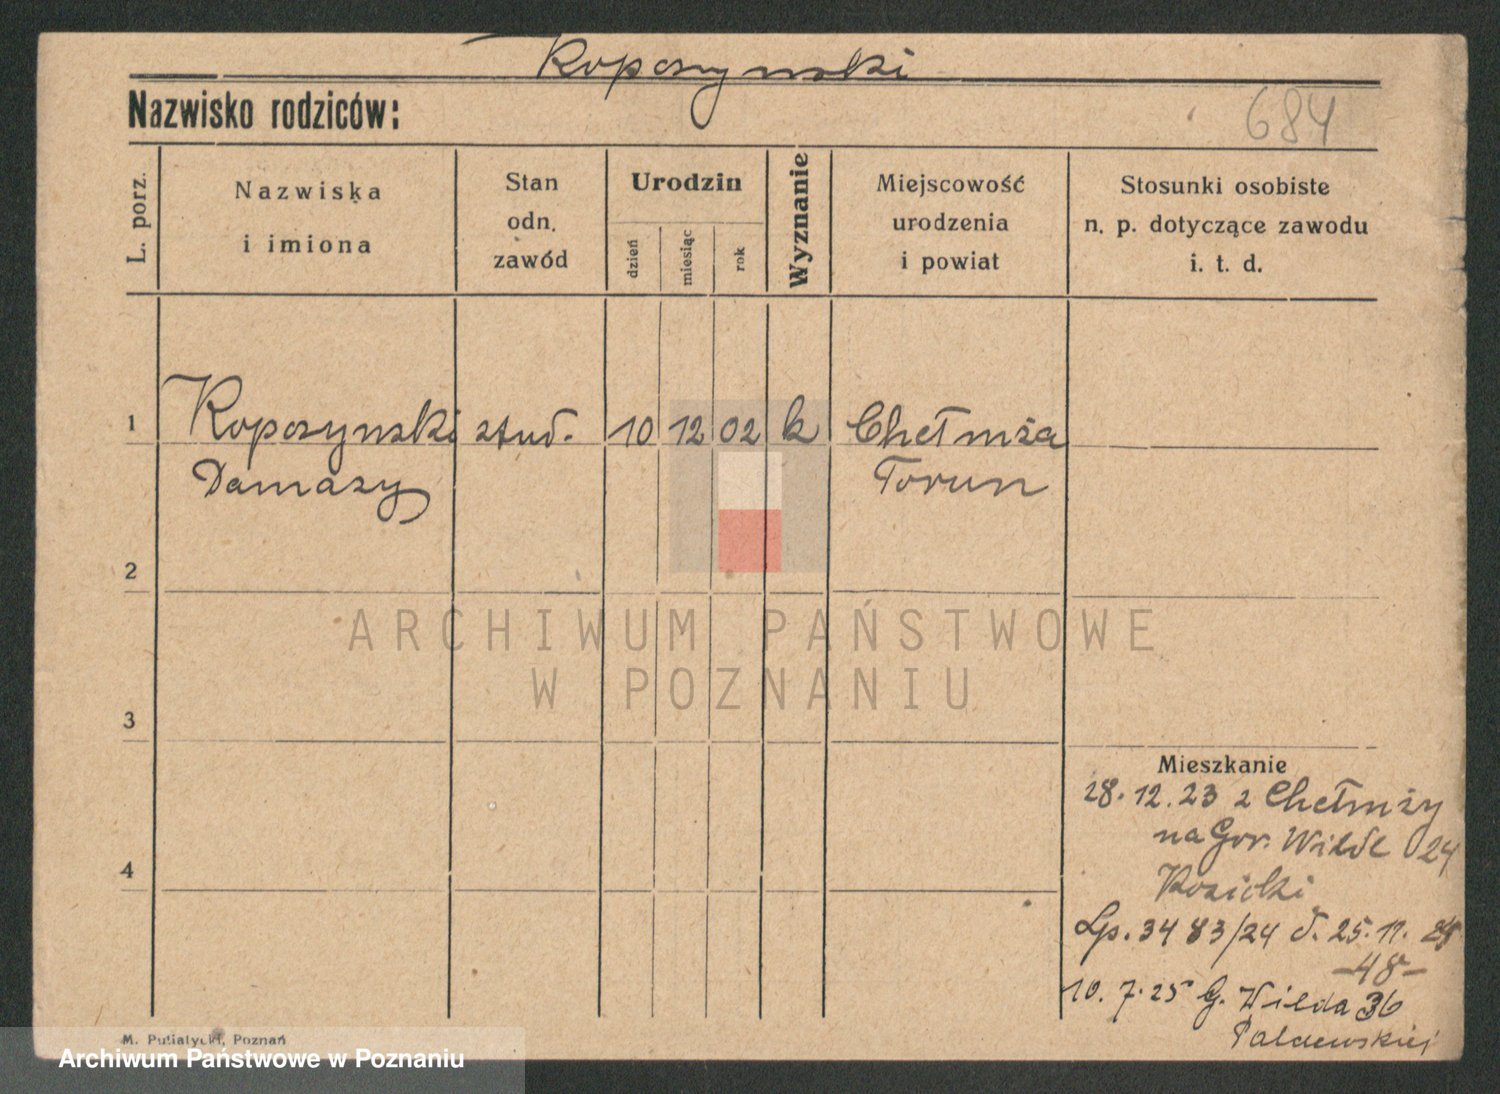 Kopczynski
Nazwisko rodziców:
684
L. porz.
Nazwiska
i imiona
Stan
odn.
zawód
Urodzin
dzień
miesiąc
rok
Wyznanie
Miejscowość
urodzenia
i powiat
Stosunki osobiste
n. p. dotyczące zawodu
i. t. d.
1
Kopczynski stud. 10 12 02 k Chełmża
Damazy Torun
2
ARCHIWUM PAŃSTWOWE
W POZNANIU
3
Mieszkanie
28.12.23 z Chełmży
na Gor. Wilde 24
4
Lp. 3483/24 d. 25.11.
-48-
10.7.25 G. Wilda 36
M. Putiatycki, Poznań
Archiwum Państwowe w Poznaniu